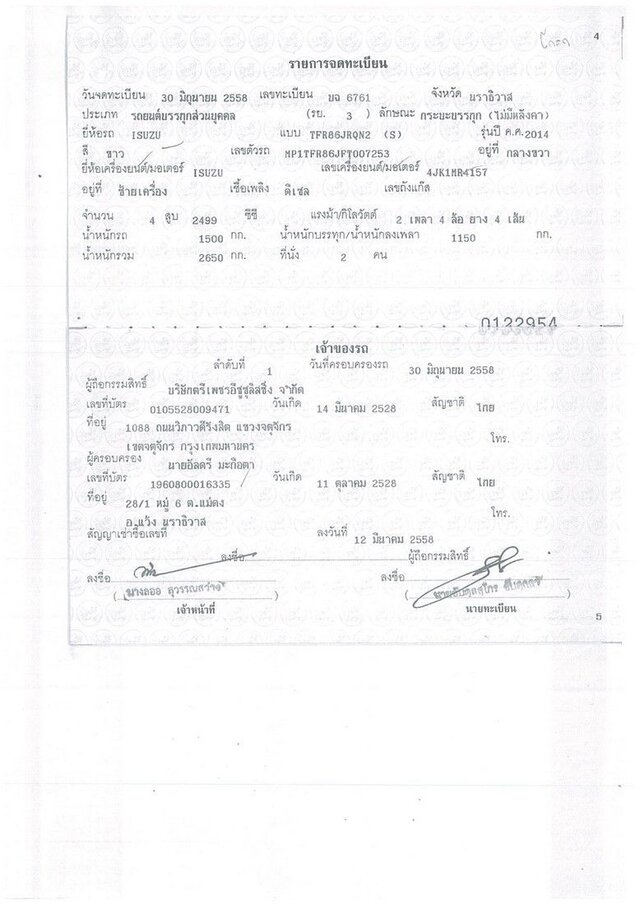 4
รายการจดทะเบียน
วันจดทะเบียน 30 มิถุนายน 2558 เลขทะเบียน บฉ 6761 จังหวัด นราธิวาส
ประเภท รถยนต์บรรทุกส่วนบุคคล (รย. 3 ) ลักษณะ กระบะบรรทุก (ไม่มีหลังคา)
ยี่ห้อรถ ISUZU แบบ TFR86JRQN2 (S) รุ่นปี ค.ศ.2014
สี ขาว เลขตัวรถ MP1TFR86JFT007253 อยู่ที่ กลางขวา
ยี่ห้อเครื่องยนต์/มอเตอร์ ISUZU เลขเครื่องยนต์/มอเตอร์ 4JK1MR4157
อยู่ที่ ซ้ายเครื่อง เชื้อเพลิง ดีเซล เลขถังแก๊ส
จำนวน 4 สูบ 2499 ซีซี แรงม้า/กิโลวัตต์ 2 เพลา 4 ล้อ ยาง 4 เส้น
น้ำหนักรถ 1500 กก. น้ำหนักบรรทุก/น้ำหนักลงเพลา 1150 กก.
น้ำหนักรวม 2650 กก. ที่นั่ง 2 คน
0132954
เจ้าของรถ
ลำดับที่ 1 วันที่ครอบครองรถ 30 มิถุนายน 2558
ผู้ถือกรรมสิทธิ์ บริษัทตรีเพชรอีซูซุลิสซิ่ง จำกัด
เลขที่บัตร 0105528009471 วันเกิด 14 มีนาคม 2528 สัญชาติ ไทย
ที่อยู่ 1088 ถนนวิภาวดีรังสิต แขวงจตุจักร
เขตจตุจักร กรุงเทพมหานคร โทร.
ผู้ครอบครอง นายอัลตรี มะกือตา
เลขที่บัตร 1960800016335 วันเกิด 11 ตุลาคม 2528 สัญชาติ ไทย
ที่อยู่ 28/1 หมู่ 6 ต.แม่ดง
อ.แว้ง นราธิวาส โทร.
สัญญาเช่าซื้อเลขที่ ลงวันที่ 12 มีนาคม 2558
ลงชื่อ ผู้ถือกรรมสิทธิ์
ลงชื่อ ลงชื่อ
(นางลออ สุวรรณสว่าง)
เจ้าหน้าที่ นายทะเบียน
5